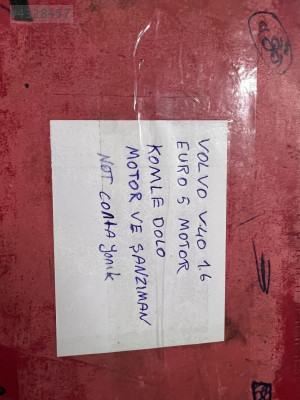 VOLVO V40 1.6
EURO 5 MOTOR
KOMLE DOLO
MOTOR VE ŞANZIMAN
NOT CONTA YANIK